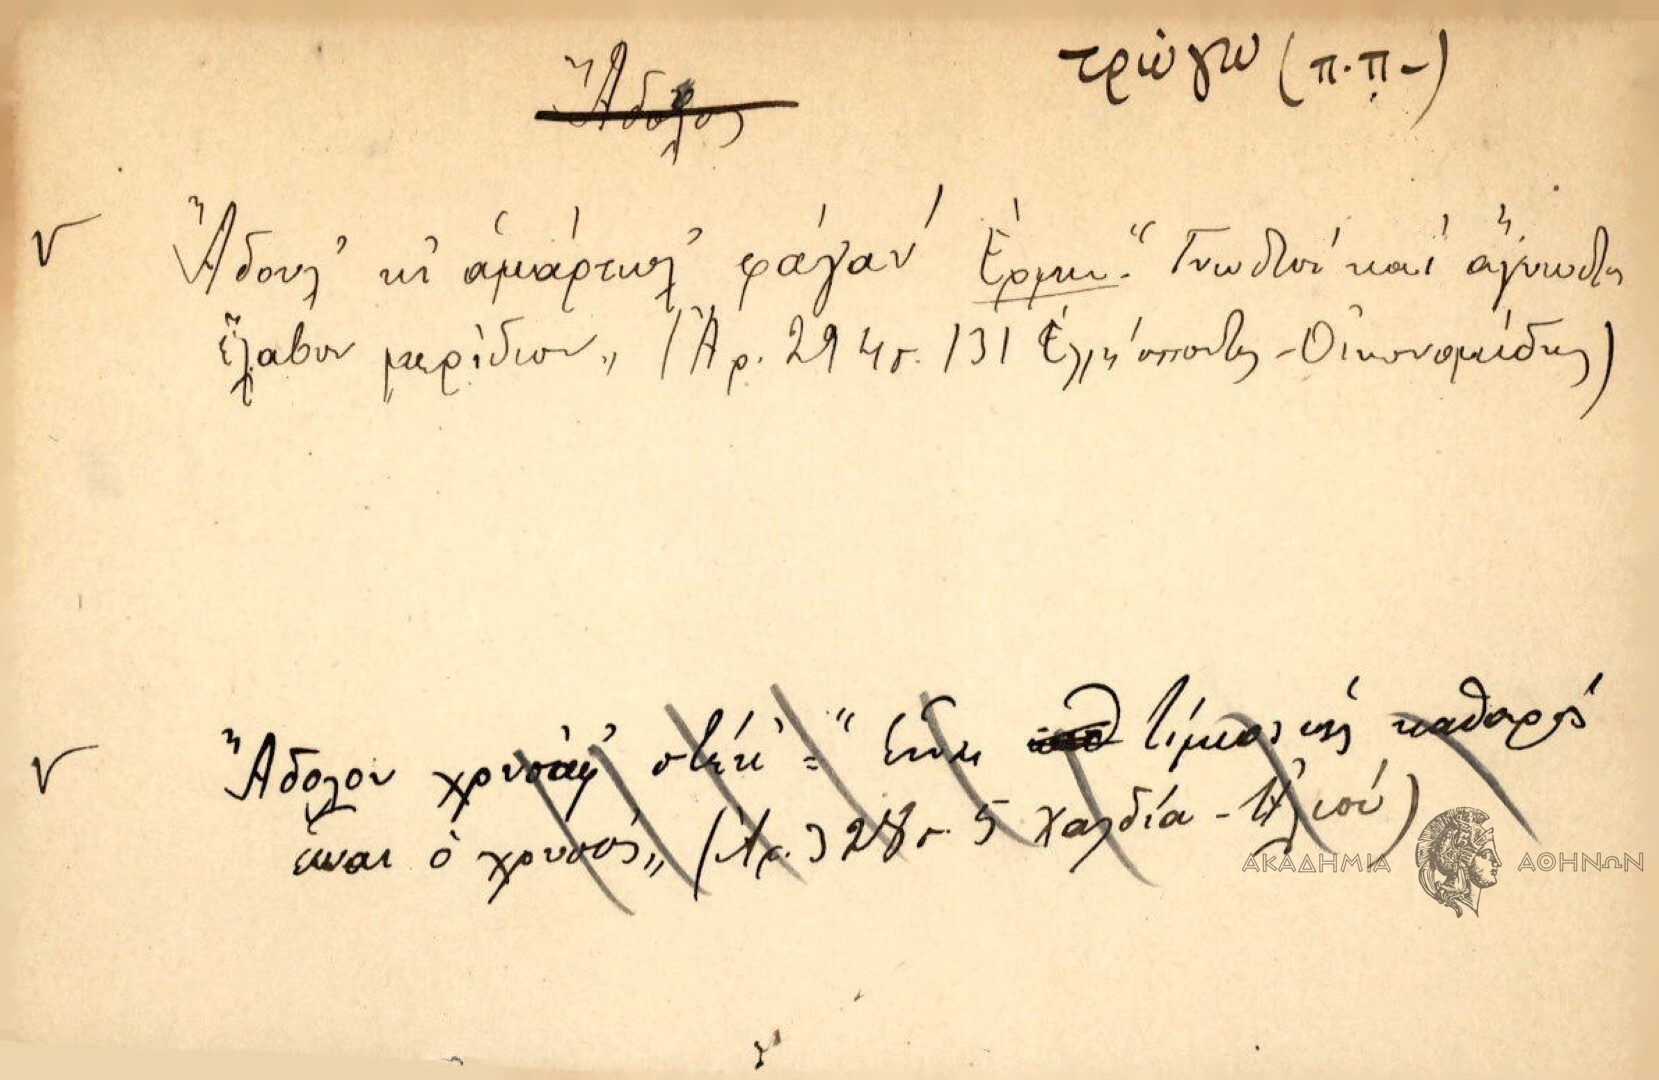 Ἄδολος
τρώγω (π.π-)
Ἄδουλ' κι ἁμάρτωλ' φάγαν' Ἑρμ. "Γνωστοί καί ἄγνωστοι
ἔλαβον μερίδιον„ (Ἀρ. 294 σ. 131 Ἑλλήσποντος - Οἰκονομίδης)
Ἄδολον χρυσάφ' στέκ' = " εἶναι τίμιος κ καθαρός
εἶναι ὁ χρυσός„ (Ἀρ. 328 σ. 5 Χαλδία -
ΑΚΑΔΗΜΙΑ ΑΘΗΝΩΝ